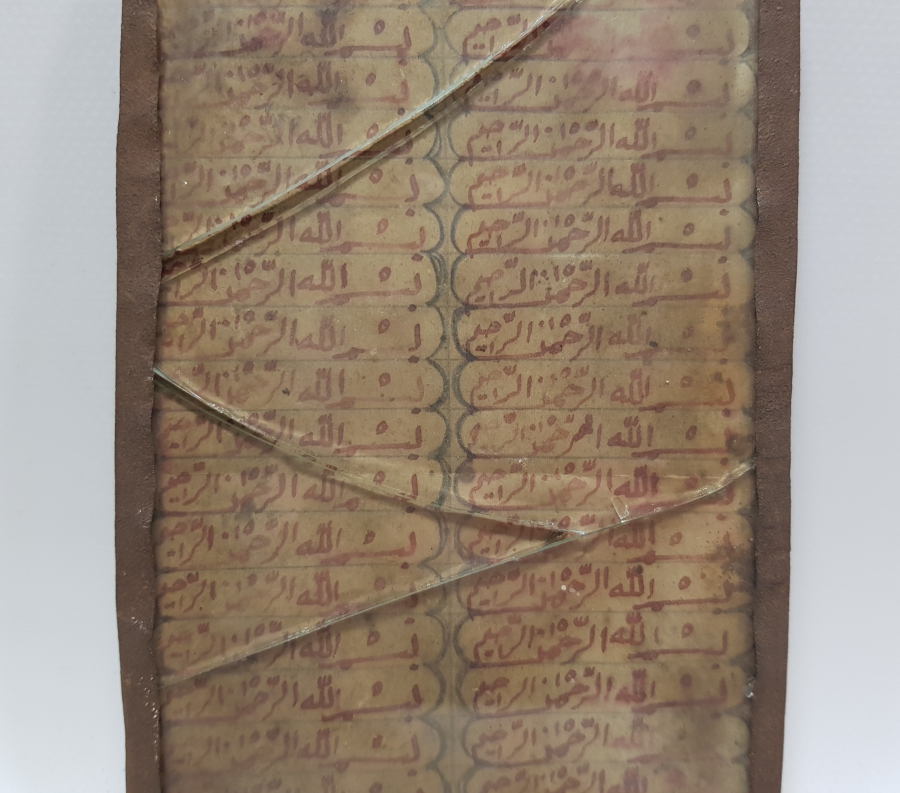 بسم الله الرحمن الرحيم
بسم الله الرحمن الرحيم
بسم الله الرحمن الرحيم
بسم الله الرحمن الرحيم
بسم الله الرحمن الرحيم
بسم الله الرحمن الرحيم
بسم الله الرحمن الرحيم
بسم الله الرحمن الرحيم
بسم الله الرحمن الرحيم
بسم الله الرحمن الرحيم
بسم الله الرحمن الرحيم
بسم الله الرحمن الرحيم
بسم الله الرحمن الرحيم
بسم الله الرحمن الرحيم
بسم الله الرحمن الرحيم
بسم الله
بسم الله الرحمن
بسم الله الرحمن
بسم الله الرحمن الرحيم
بسم الله الرحمن الرحيم
بسم الله الرحمن الرحيم
بسم الله الرحمن الرحيم
بسم الله الرحمن الرحيم
بسم الله الرحمن الرحيم
بسم الله الرحمن الرحيم
بسم الله الرحمن الرحيم
بسم الله الرحمن الرحيم
بسم الله الرحمن الرحيم
بسم الله الرحمن الرحيم
بسم الله الرحمن